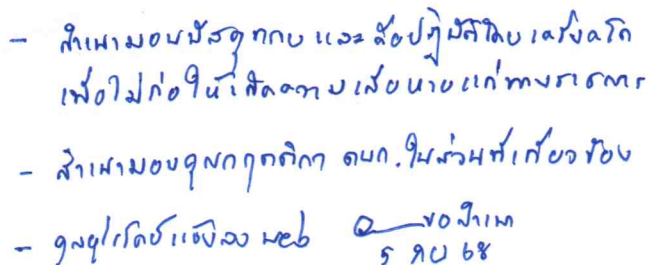 - สำเนามอบพัสดุทกบ และถือปฏิบัติโดยเคร่งครัด
เพื่อไม่ก่อให้เกิดความเสียหายแก่ทางราชการ
- สำเนามอบคุณกฤตติกา ในส่วนที่เกี่ยวข้อง
- ขอสำเนา
5 กย 68